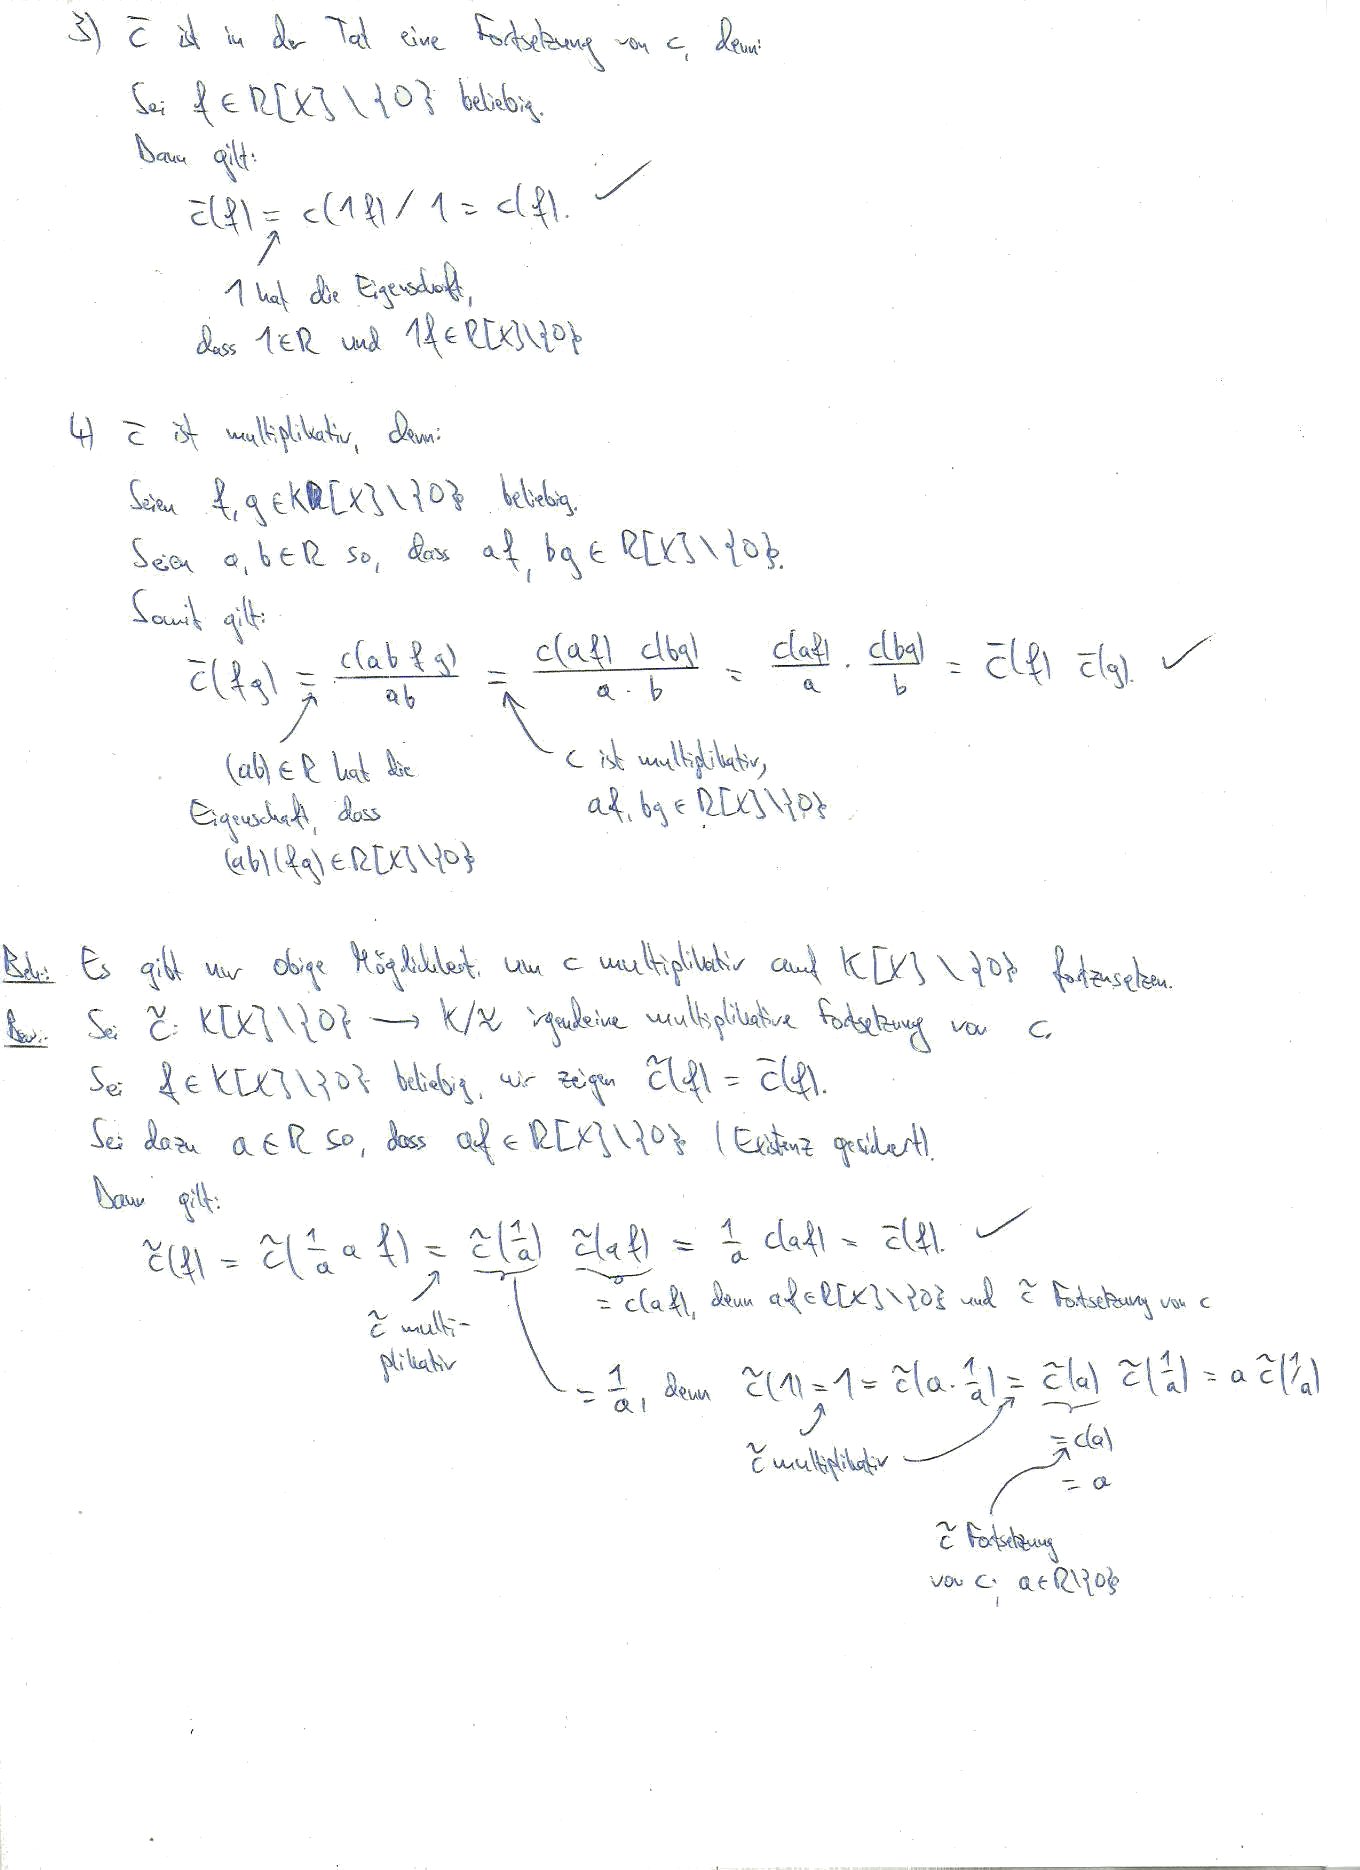 3) c̄ ist in der Tat eine Fortsetzung von c, denn:
Sei f ∈ R[X] \ {0} beliebig.
Dann gilt:
c̄(f) = c(1f) / 1 = c(f). ✓
1 hat die Eigenschaft,
dass 1∈R und 1f ∈ R[X]\{0}
4) c̄ ist multiplikativ, denn:
Seien f, g ∈ K[X] \ {0} beliebig.
Seien a, b ∈ R so, dass af, bg ∈ R[X] \ {0}.
Somit gilt:
c̄(fg) = c(ab fg) / ab = c(af) c(bg) / a · b = c(af) / a · c(bg) / b = c̄(f) c̄(g). ✓
(ab) ∈ R hat die
Eigenschaft, dass
(ab)(fg) ∈ R[X] \{0}
c ist multiplikativ,
af, bg ∈ R[X]\{0}
Beh.: Es gibt nur obige Möglichkeit, um c multiplikativ auf K[X] \ {0} fortzusetzen.
Bew.: Sei c̃: K[X] \ {0} → K/~ irgendeine multiplikative Fortsetzung von c.
Sei f ∈ K[X] \ {0} beliebig, wir zeigen c̃(f) = c̄(f).
Sei dazu a ∈ R so, dass af ∈ R[X] \ {0} (Existenz gesichert).
Dann gilt:
c̃(f) = c̃(1/a a f) = c̃(1/a) c̃(af) = 1/a c(af) = c̄(f). ✓
= c(af), denn af ∈ R[X] \ {0} und c̃ Fortsetzung von c
c̃ multi-
plikativ
= 1/a, denn c̃(1) = 1 = c̃(a · 1/a) = c̃(a) c̃(1/a) = a c̃(1/a)
= c(a)
c̃ multiplikativ
= a
c̃ Fortsetzung
von c, a ∈ R\{0}